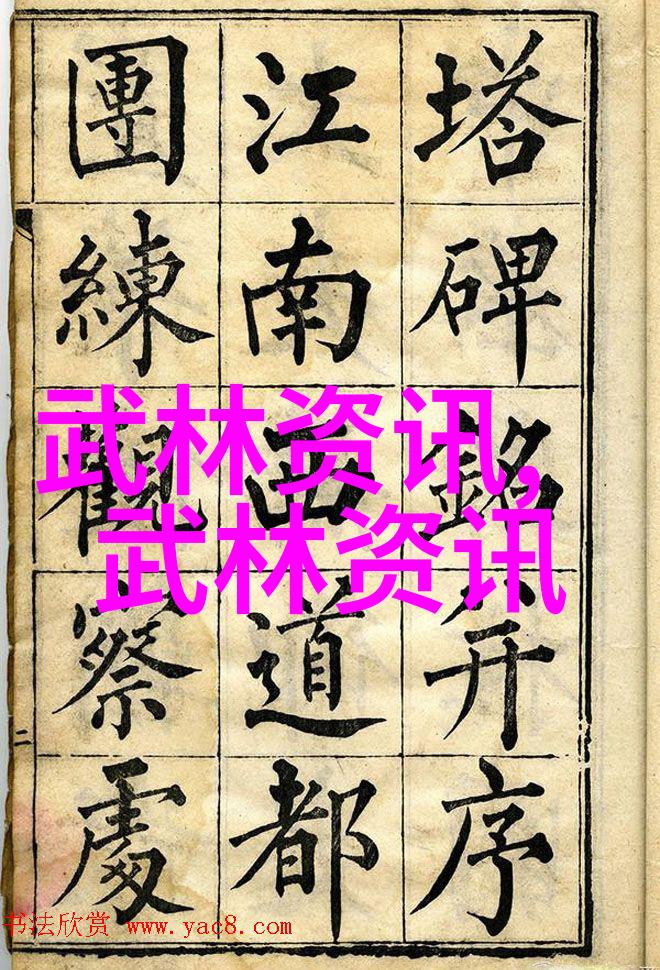 塔碑銘并序
江南西道都
團練觀察處
武林资讯,
武林资讯
二
书法欣赏 www.yac8.com